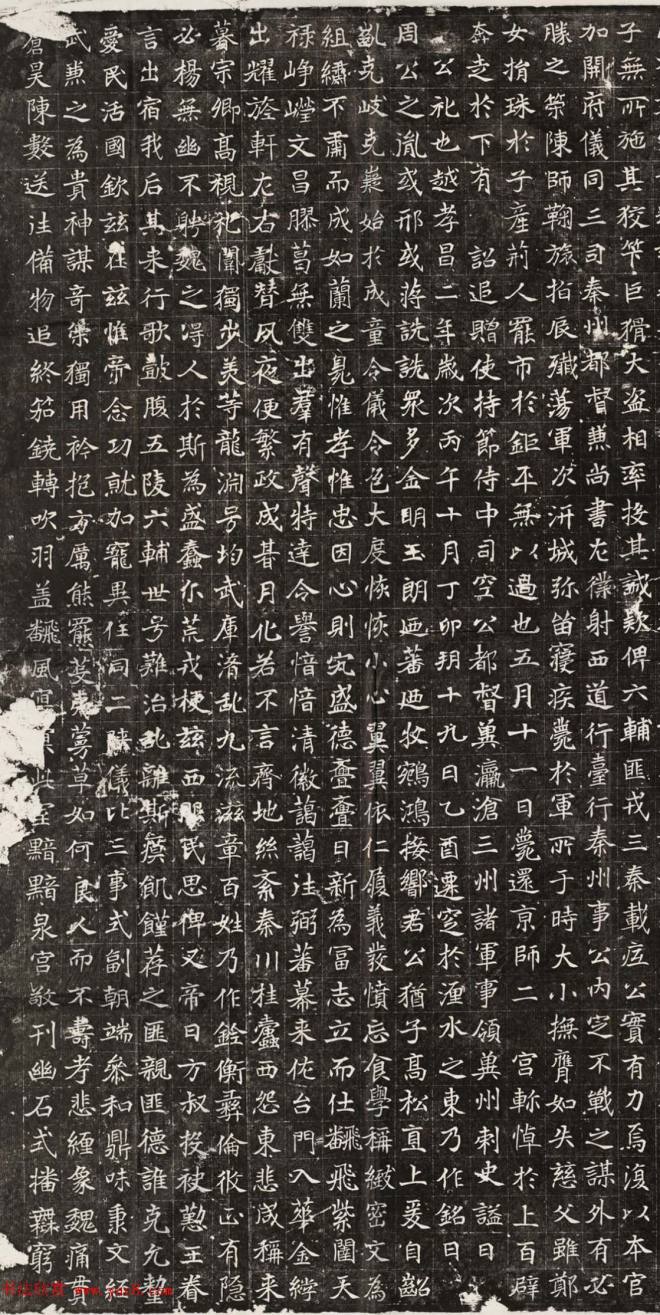 子無所施其狡筭巨猾大盜相率投其誠款俾六輔匪戎三秦載庇公實有力焉復以本官
加開府儀同三司秦州都督兼尚書左僕射西道行臺行秦州事公內定不戰之謀外有必
勝之筞陳師鞠旅指辰殲蕩軍次汧城弥留寢疾薨於軍所于時大小撫膺如失慈父雖鄭
女捐珠於子產荊人罷市於鉅平無以過也五月十一日薨還京師二 宮軫悼於上百辟
奔走於下有 詔追贈使持節侍中司空公都督冀瀛滄三州諸軍事領冀州刺史謚曰
公礼也越孝昌二年歲次丙午十月丁卯朔十九日乙酉遷窆於湹水之東乃作銘曰
周公之胤或邢或蔣詵詵眾多金明玉朗迺蕃迺牧鵷鴻接響君公猶子高松直上爰自齠
齓克岐克嶷始於成童令儀令色大度恢恢小心翼翼依仁履義發憤忘食學稱緻密文為
組繡不肅而成如蘭之臰惟孝惟忠因心則宄盛德亹亹日新為冨志立而仕翻飛紫闥天
祿崢嶸文昌膠葛無雙出羣有聲特達令譽愔愔清徽藹藹往弼蕃幕来佐台門入華金綍
出耀旌軒左右獻替夙夜便繁政成朞月化若不言齊地絲紊秦川桂蠹西怨東悲咸稱来
暮宗卿高視礼闈獨步美等龍淵号均武庫淆乱九流滋章百姓乃作銓衡彝倫攸正有隱
必楊無幽不聘魏之得人於斯為盛蠢尒荒戎梗兹西服民思俾乂帝曰方叔投袂勤王眷
言出宿我后其来行歌鼓腹五陵六輔世号難治乱離斯瘼飢饉荐之匪親匪德誰克允釐
愛民活國欽兹在兹惟帝念功就加寵異任同二陝儀比三事式副朝端叅和鼎味秉文經
武兼之為貴神謀奇筞獨用衿抱方厲熊羆芟夷蔓草如何良人而不壽考悲纏象魏痛貫
倉昊陳數送往備物追終笳鐃轉吹羽盖翻風室黯黯泉宮敬刊幽石式播無窮